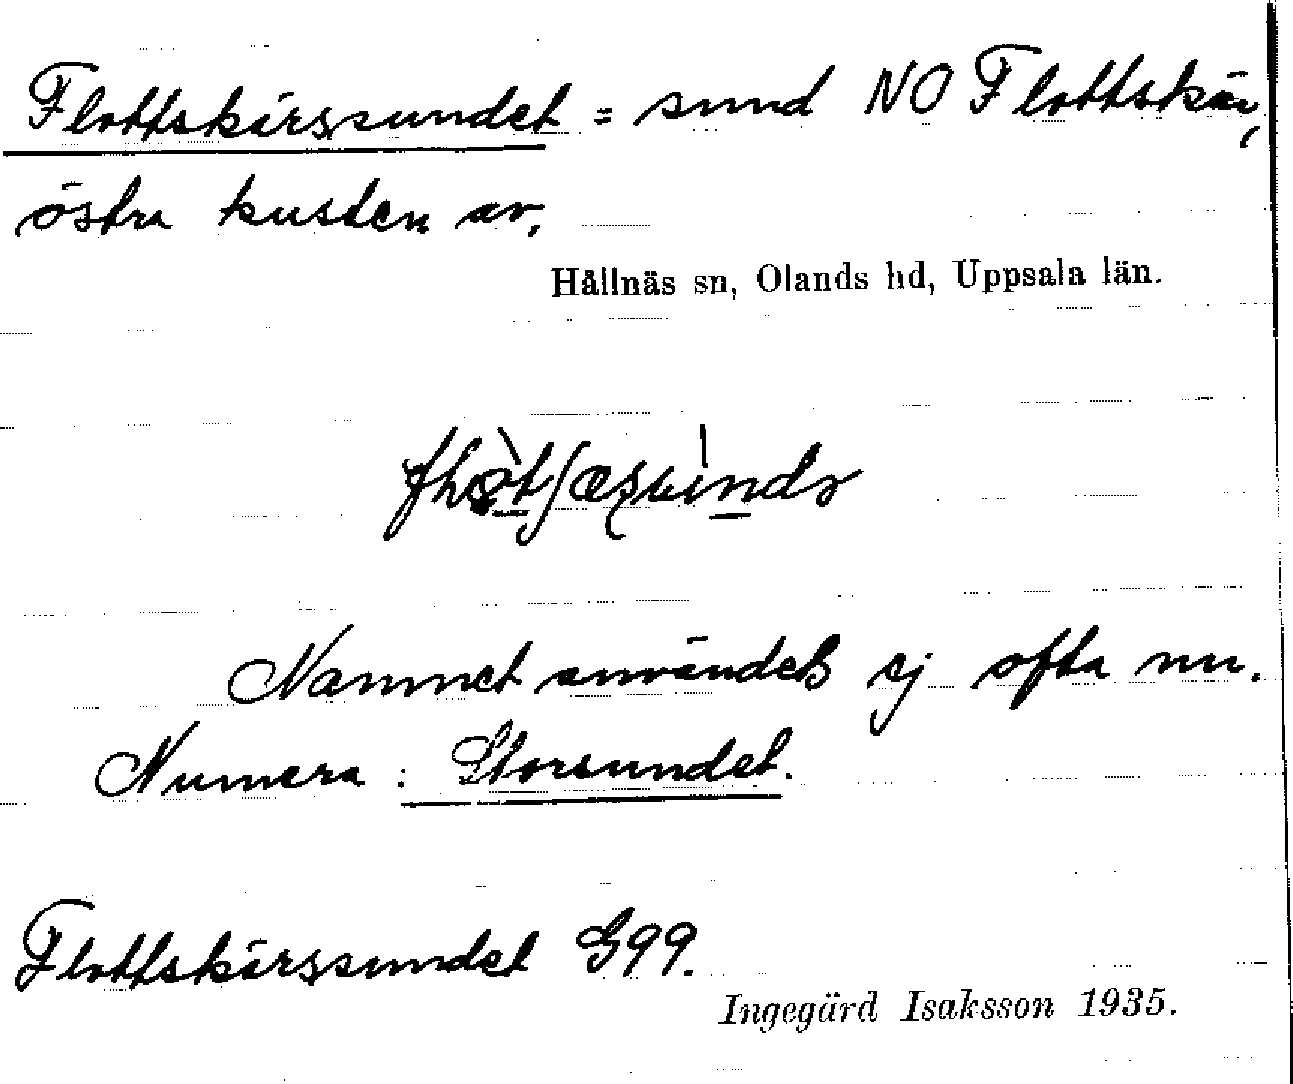 Flottskärssundet = sund NO Flottskär,
östra kusten av,
Hållnäs sn, Olands hd, Uppsala län.
Namnet användes ej ofta nu.
Numera: Storsundet.
Flottskärssundet G99.
Ingegärd Isaksson 1935.